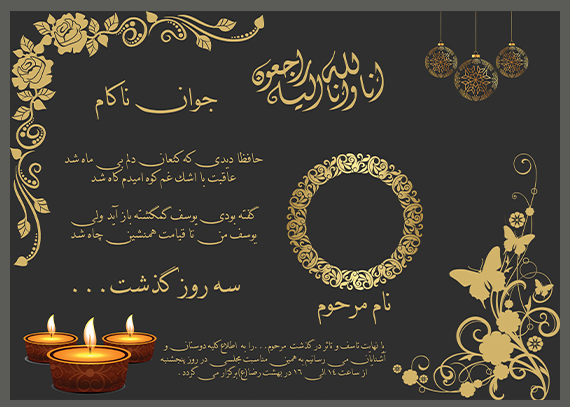 انا لله وانا اليه راجعون
جوان ناکام
حافظا دیدی که کنعان دلم بی ماه شد
عاقبت با اشک غم کوه امیدم کاه شد
گفته بودی یوسف گمگشته باز آید ولی
یوسف من تا قیامت همنشین چاه شد
سه روز گذشت...
نام مرحوم
با نهایت تاسف و تاثر درگذشت مرحوم...را به اطلاع کلیه دوستان و
آشنایان می رسانیم به همین مناسبت مجلسی در روز پنجشنبه
از ساعت ۱۴ الی ۱۶ در بهشت رضا(ع)برگزار می گردد .